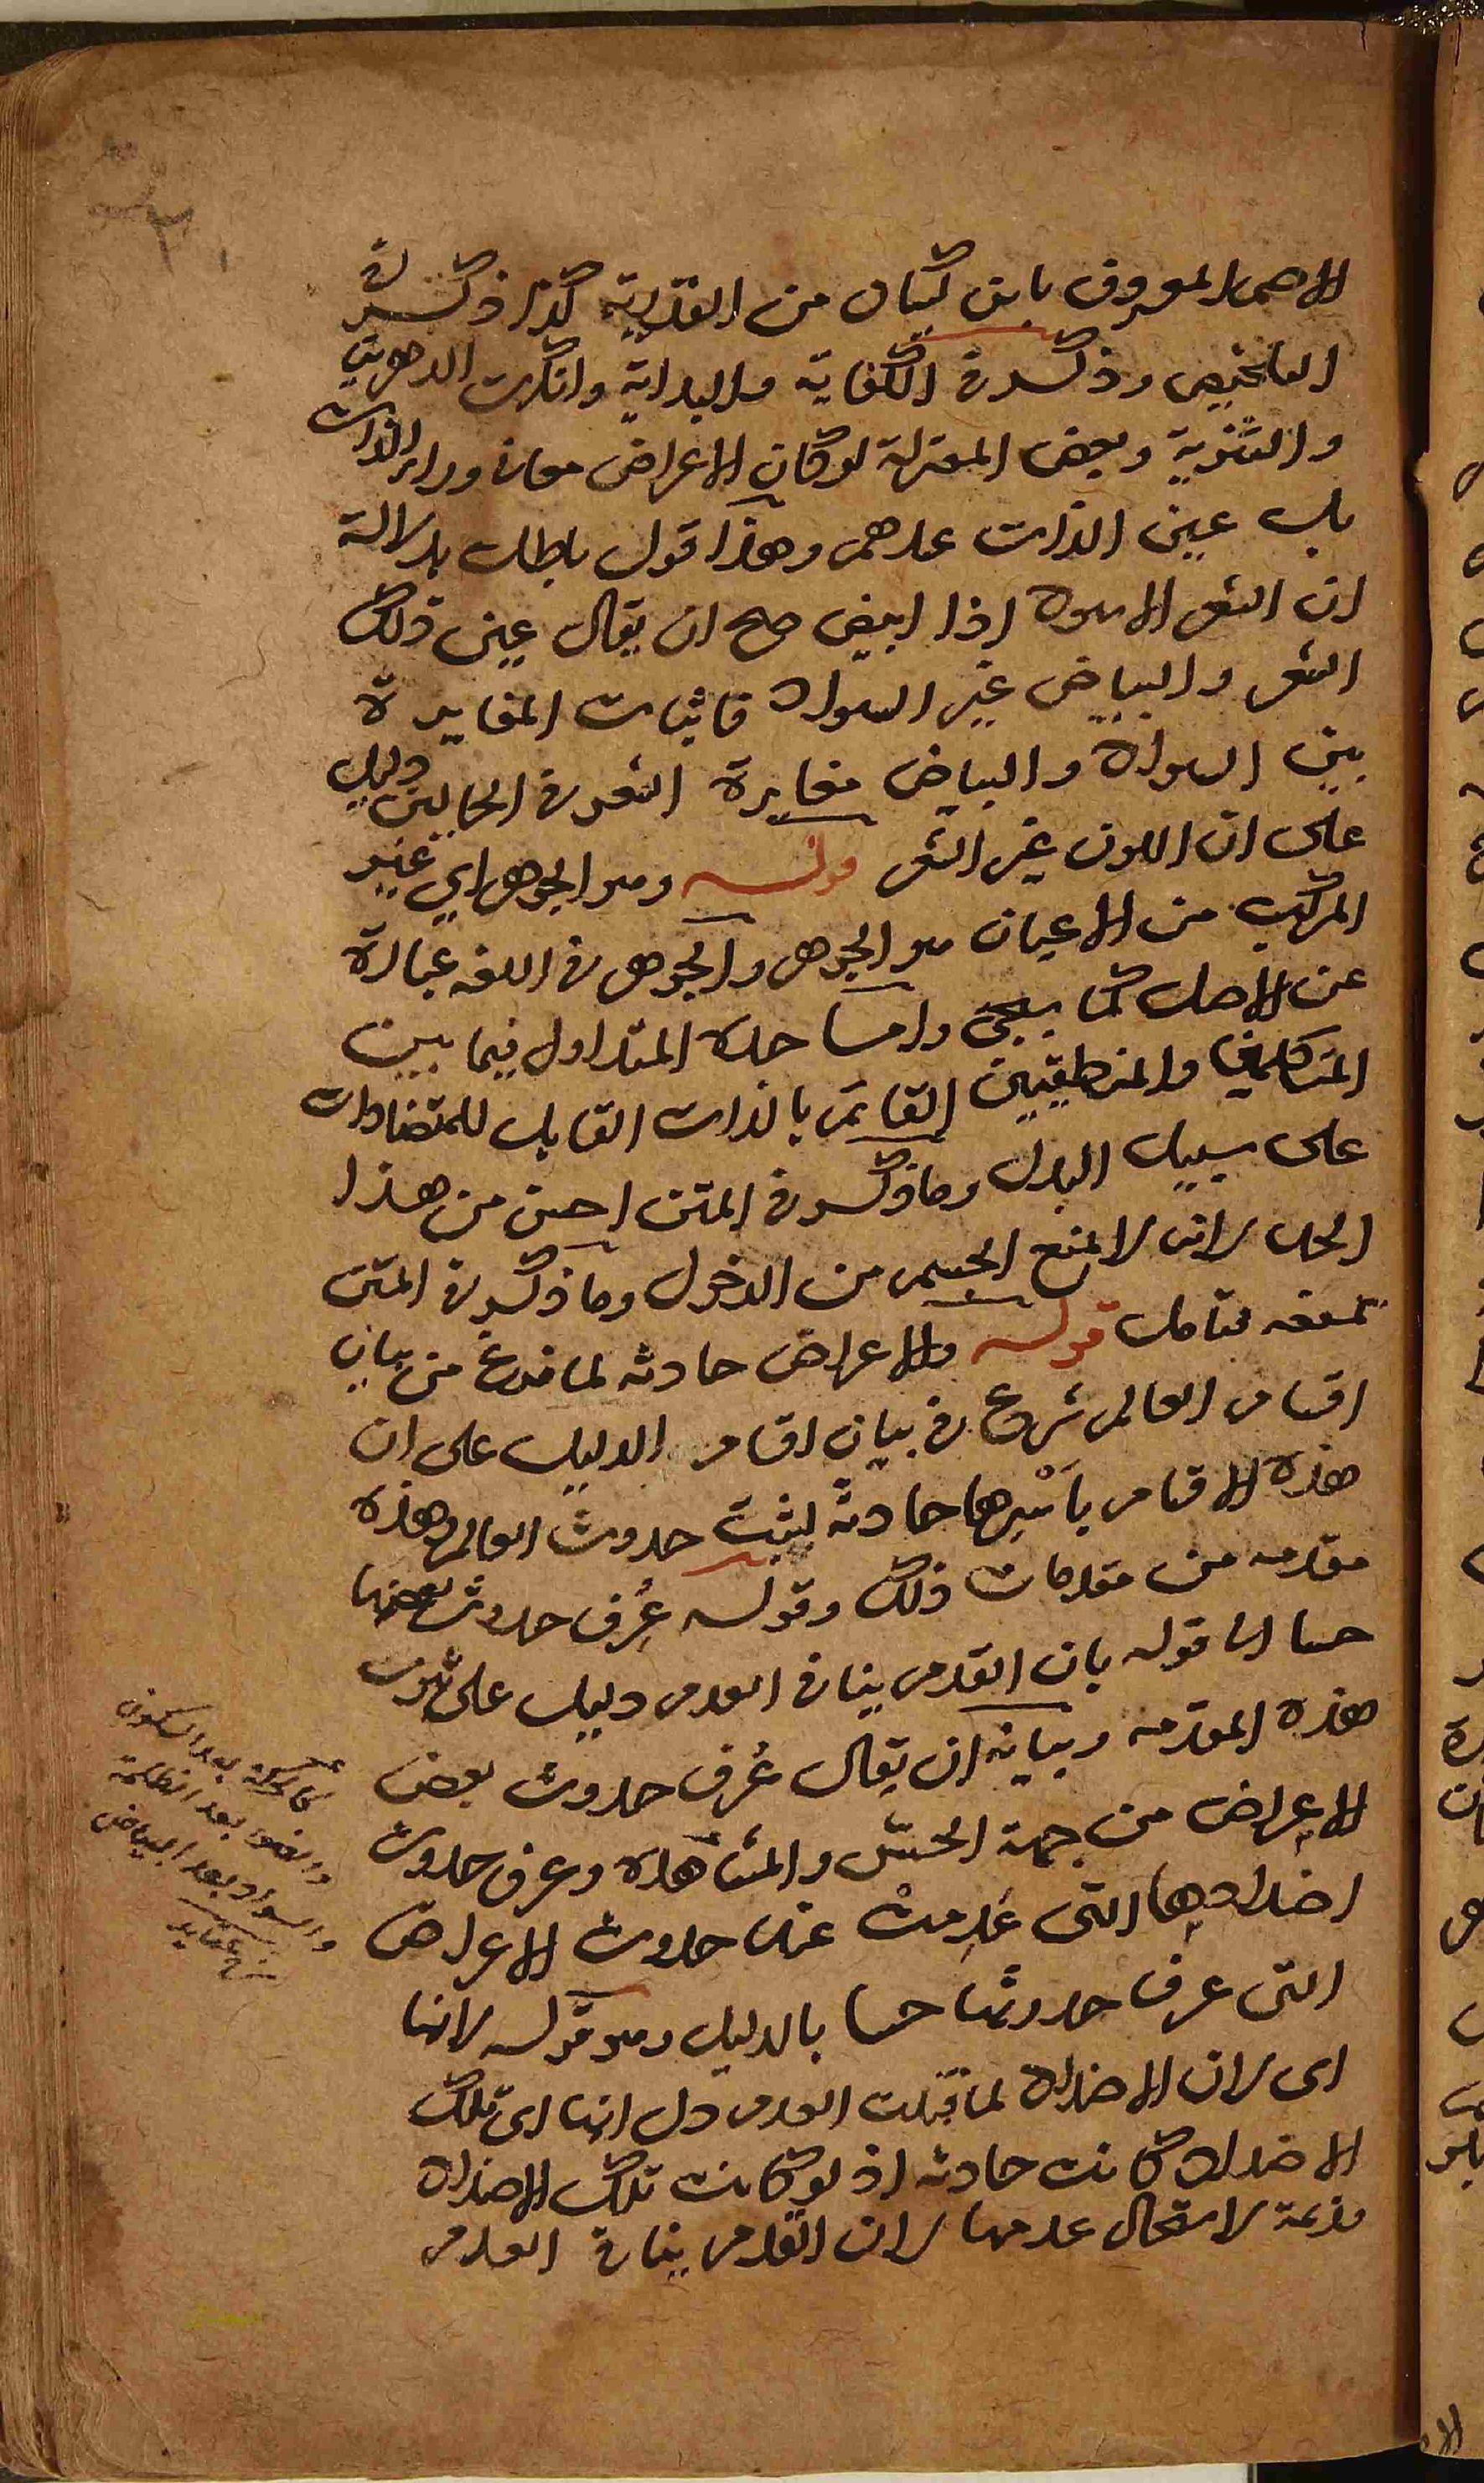 الاصم المعروف بابن كيسان من القدرية كذا ذكره في
التلخيص وذكر في الكفاية والبداية وانكرت الدهرية
والثنوية وبعض المعتزلة لو كان الاعراض معان وراء الذات
بل عين الذات عندهم وهذا قول باطل بدلالة
ان الشعر الاسود اذا ابيض صح ان يقال عين ذلك
الشعر والبياض غير السواد فاثبات المغايرة
بين السواد والبياض مغايرة الشعر في الحالين دليل
على ان اللون غير الشعر قوله وهو الجوهر اي غير
المركب من الاعيان هو الجوهر والجوهر في اللغه عبارة
عن الاصل كما يجئ واما حده المتداول فيما بين
المتكلمين والمنطقيين القائم بالذات القابل للمتضادات
على سبيل البدل وما ذكر في المتن احسن من هذا
الحد لانه لا يمنع الجسم من الدخول وما ذكر في المتن
يمنعه فتامل قوله والاعراض حادثه لما فرغ من بيان
اقسام العالم شرع في بيان اقسام الدليل على ان
هذه الاقسام باَسْرِها حادثة ليثبت حدوث العالم وهذه
مقدمه من مقدمات ذلك وقوله عُرِف حدوث بعضها
حسا الى قوله بان القدم ينافي العدم دليل على ثبوت
هذه المقدمه وبيانه ان يقال عُرف حدوث بعض
الاعراض من جهة الحسّ والمشاهده وعرف حدوث
اضدادها التى عُدِمتْ عند حدوث الاعراض
التى عرف حدوثها حسا بالدليل وهو قوله لانها
اى لان الاضداد لما قبلت العدم دل انها اى تلك
الاضداد كانت حادثه اذ لو كانت تلك الاضداد
قديمة لاستحال عدمها لان القدم ينافي العدم
كالحركة بعد السكون
والضوء بعد الظلمة
والسواد بعد البياض
شرح عقايد